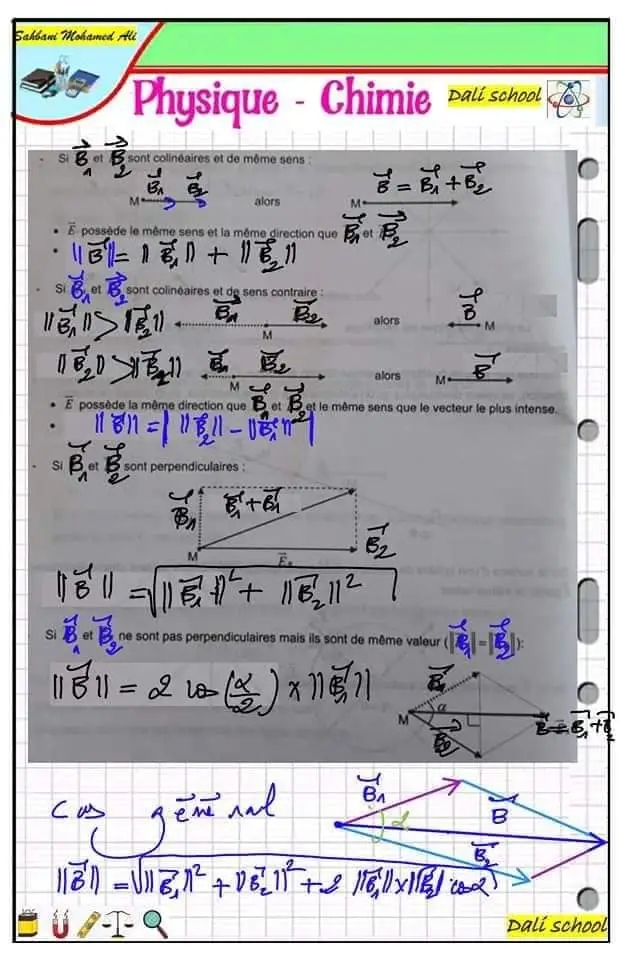 Sahbani Mohamed Ali
Physique - Chimie
Dali school
- Si B⃗₁ et B⃗₂ sont colinéaires et de même sens :
B⃗₁ B⃗₂
M alors M B⃗ = B⃗₁ + B⃗₂
• E⃗ possède le même sens et la même direction que B⃗₁ et B⃗₂
• ||B⃗|| = ||B⃗₁|| + ||B⃗₂||
- Si B⃗₁ et B⃗₂ sont colinéaires et de sens contraire :
||B⃗₁|| > ||B⃗₂|| B⃗₁ B⃗₂ M alors B⃗ M
||B⃗₂|| > ||B⃗₂|| B⃗₁ B⃗₂ M alors M B⃗
• E⃗ possède la même direction que B⃗₁ et B⃗₂ et le même sens que le vecteur le plus intense.
• ||B⃗|| = | ||B⃗₂|| - ||B⃗₁|| |
- Si B⃗₁ et B⃗₂ sont perpendiculaires :
B⃗₁ B⃗₁ + B⃗₁
M B⃗₂
||B⃗|| = √||B⃗₁||² + ||B⃗₂||²
Si B⃗₁ et B⃗₂ ne sont pas perpendiculaires mais ils sont de même valeur (||B⃗₁|| = ||B⃗₂||):
||B⃗|| = 2 cos(α/2) × ||B⃗₁||
B⃗₁
M α B⃗ = B⃗₁ + B⃗₂
B⃗₂
Cas général
B⃗₁ B⃗
α
B⃗₂
||B⃗|| = √||B⃗₁||² + ||B⃗₂||² + 2 ||B⃗₁|| × ||B⃗₂|| cos α
Dali school